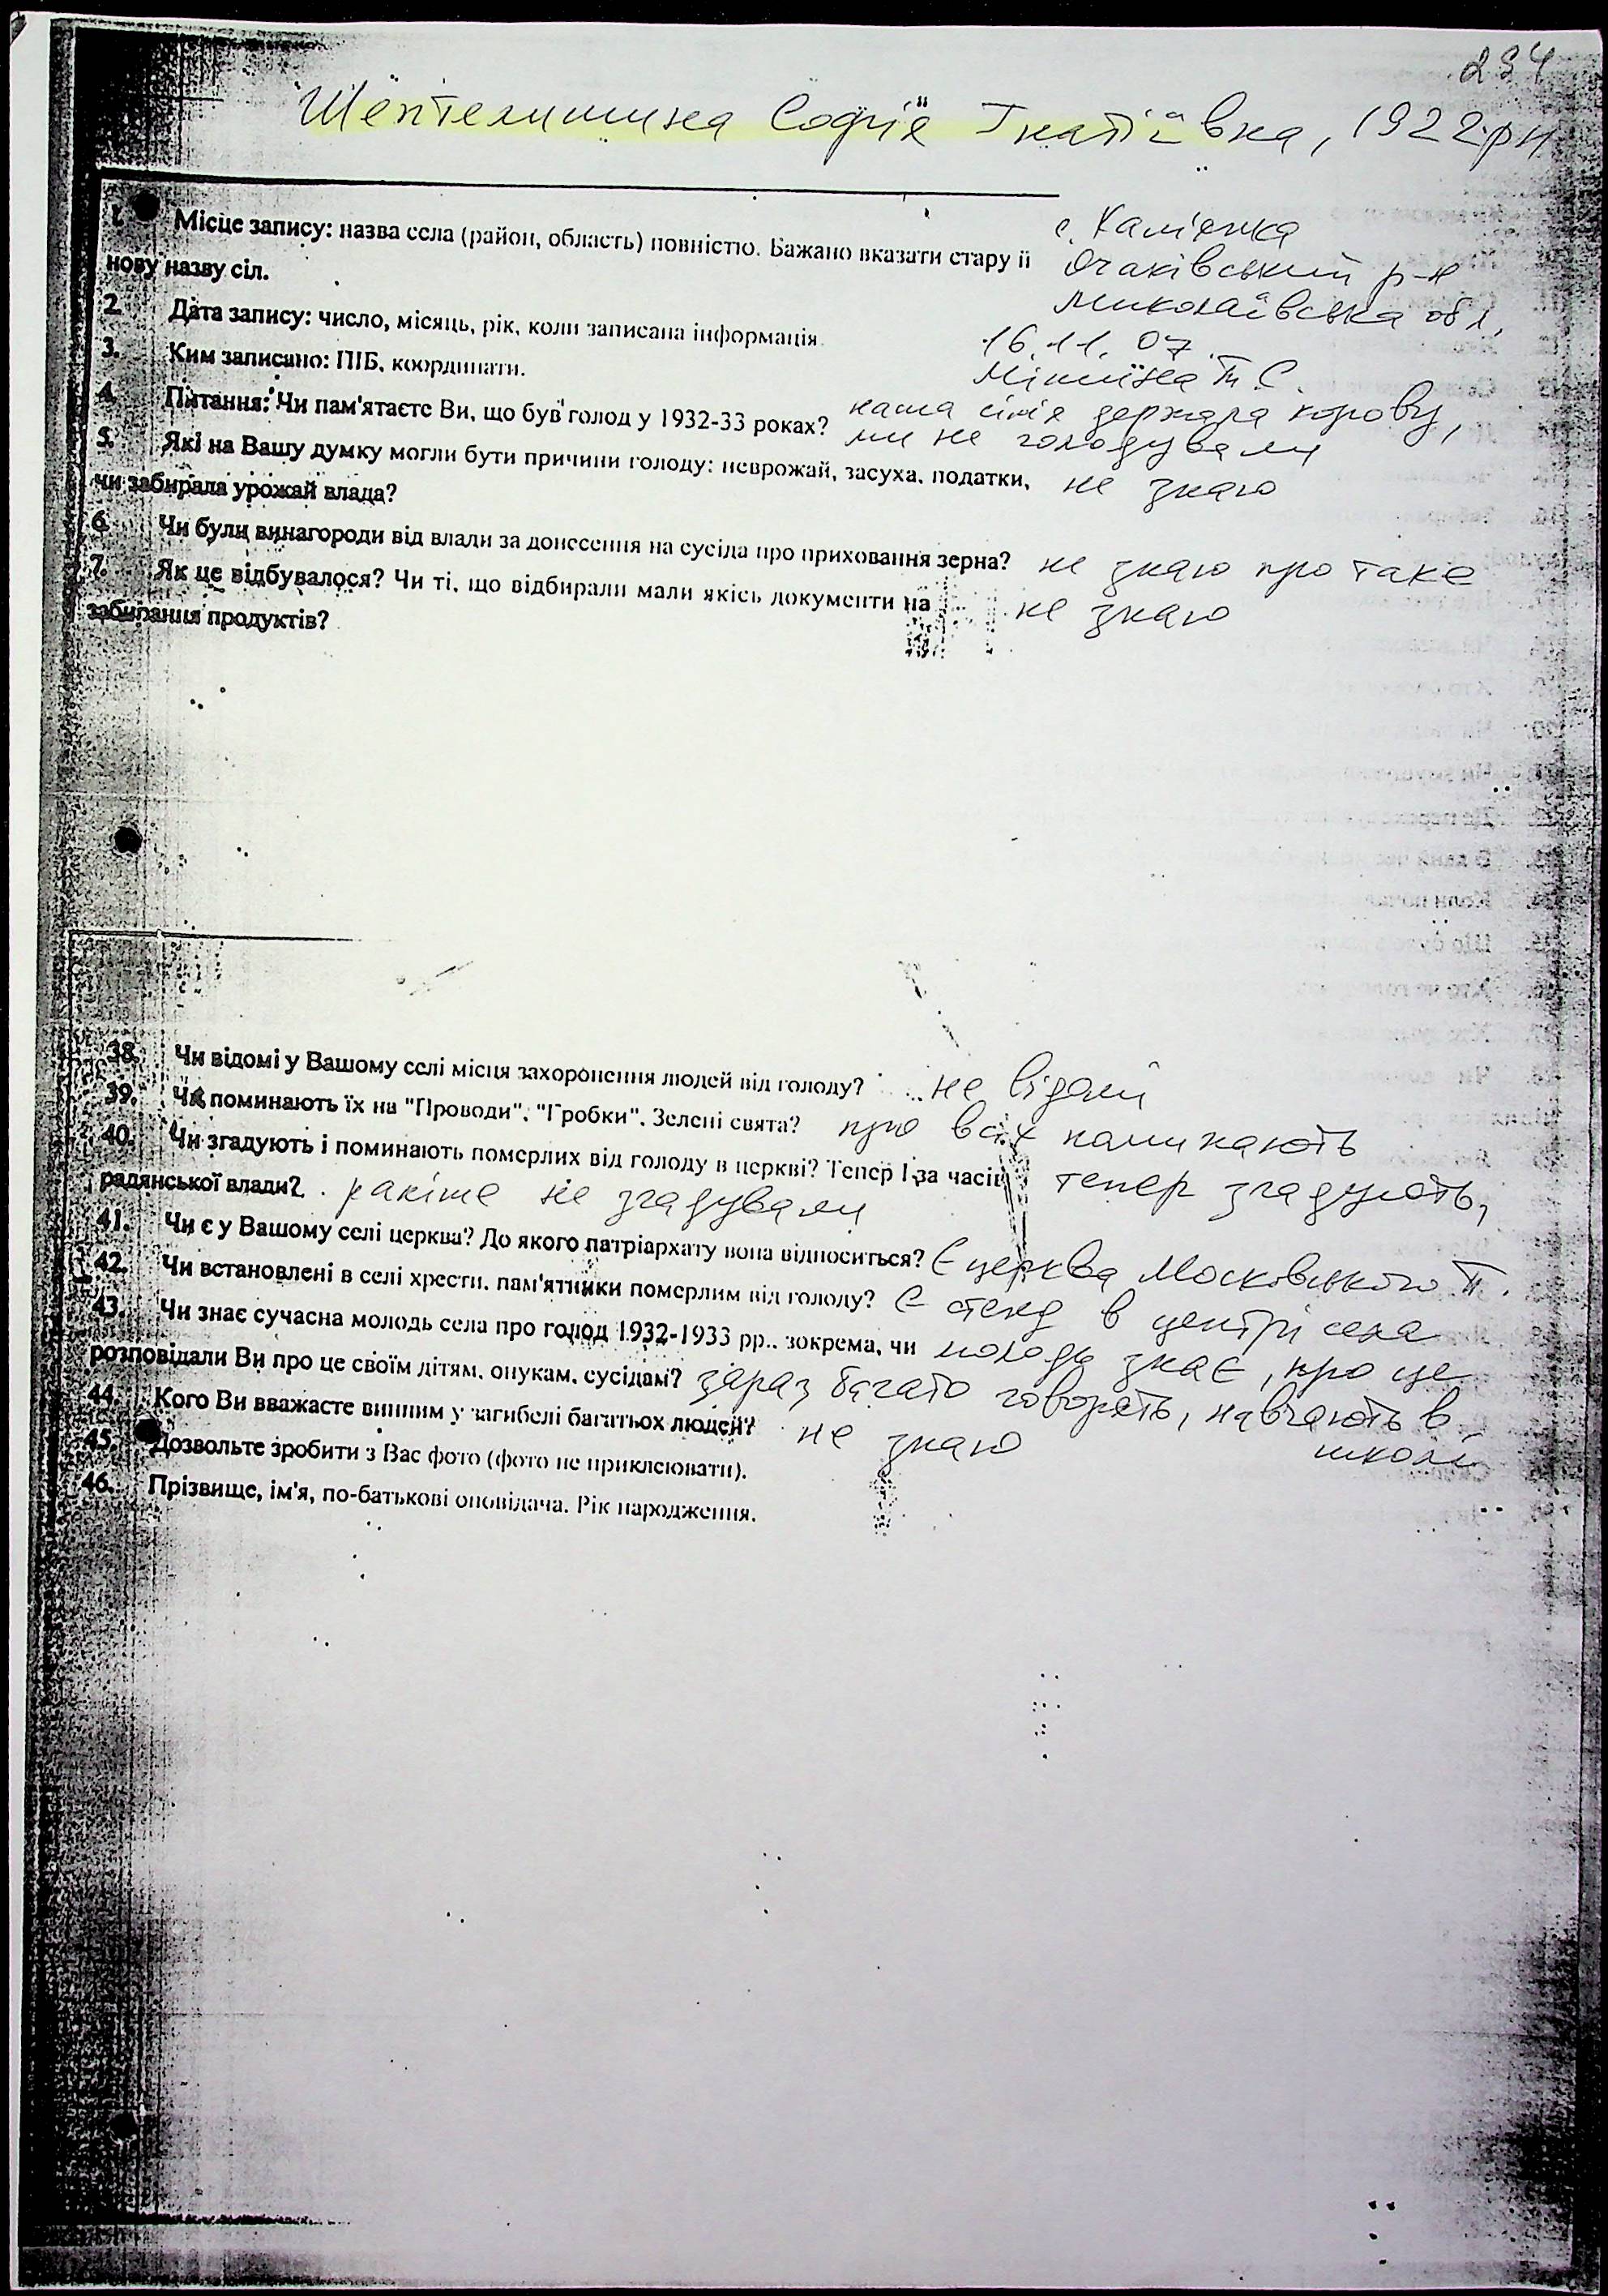 234
Шептелишина Софія Гнатіївна, 1922 рн
1. Місце запису: назва села (район, область) повністю. Бажано вказати стару й с. Кам'янка
нову назву сіл. Очаківський р-н
Миколаївська обл.
2. Дата запису: число, місяць, рік, коли записана інформація. 16.11.07.
3. Ким записано: ПІБ, координати. Т. С.
4. Питання: Чи пам'ятаєте Ви, що був голод у 1932-33 роках? наша сім'я держала корову,
ми не голодували
5. Які на Вашу думку могли бути причини голоду: неврожай, засуха, податки,
чи забирала урожай влада? не знаю
6. Чи були винагороди від влади за донесення на сусіда про приховання зерна? не знаю про таке
7. Як це відбувалося? Чи ті, що відбирали мали якісь документи на не знаю
забирання продуктів?
38. Чи відомі у Вашому селі місця захоронення людей від голоду? не відомі
39. Чи поминають їх на "Проводи", "Гробки", Зелені свята? про всіх поминають
40. Чи згадують і поминають померлих від голоду в церкві? Тепер і за часів тепер згадують,
радянської влади? раніше не згадували
41. Чи є у Вашому селі церква? До якого патріархату вона відноситься? Є церква Московського п.
42. Чи встановлені в селі хрести, пам'ятники померлим від голоду? Є стенд в центрі села
43. Чи знає сучасна молодь села про голод 1932-1933 рр., зокрема, чи молодь знає, про це
розповідали Ви про це своїм дітям, онукам, сусідам? зараз багато говорять, навчають в
школі
44. Кого Ви вважаєте винним у загибелі багатьох людей? не знаю
45. Дозвольте зробити з Вас фото (фото не приклеювати).
46. Прізвище, ім'я, по-батькові оповідача. Рік народження.